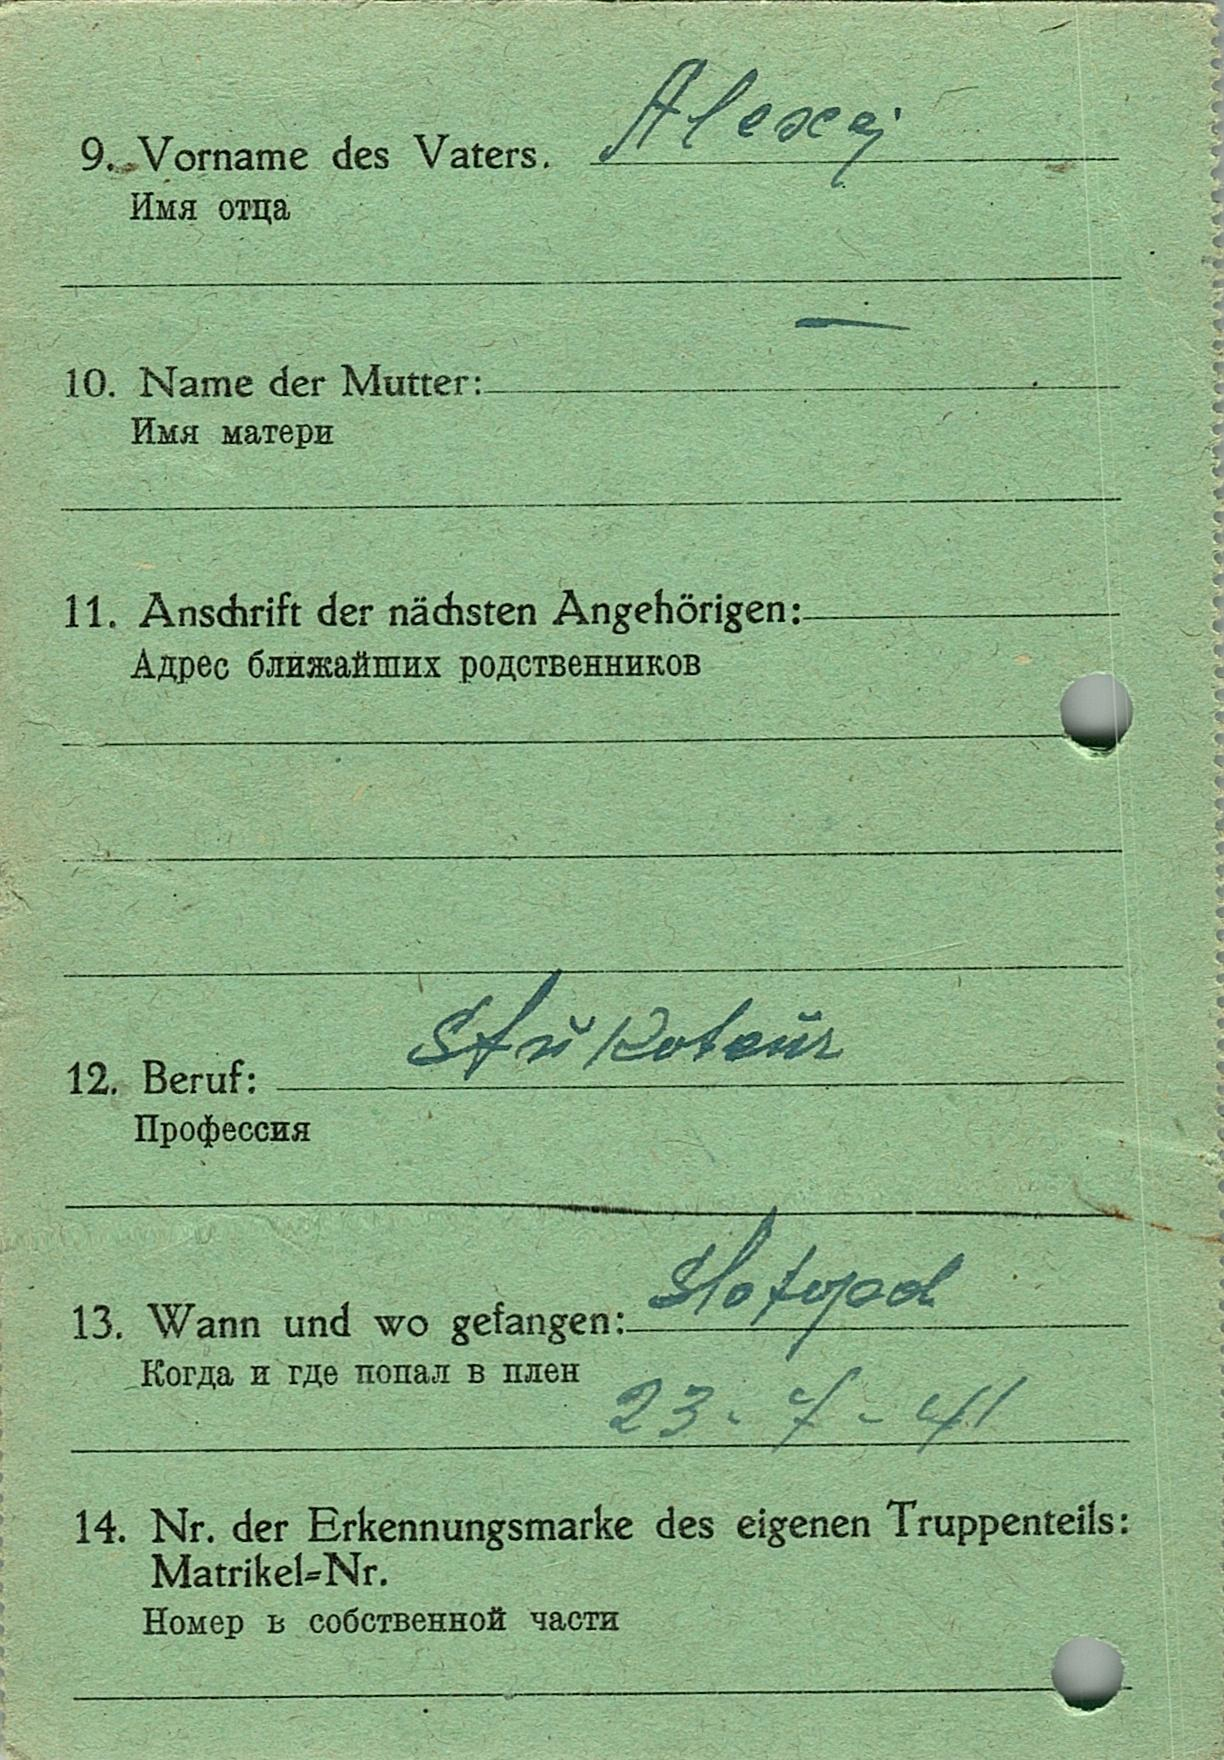 Alexej
9. Vorname des Vaters.
Имя отца
—
10. Name der Mutter:
Имя матери
11. Anschrift der nächsten Angehörigen:
Адрес ближайших родственников
Stŭkateŭr
12. Beruf:
Профессия
13. Wann und wo gefangen:
Когда и где попал в плен
23-7-41
14. Nr. der Erkennungsmarke des eigenen Truppenteils:
Matrikel-Nr.
Номер в собственной части